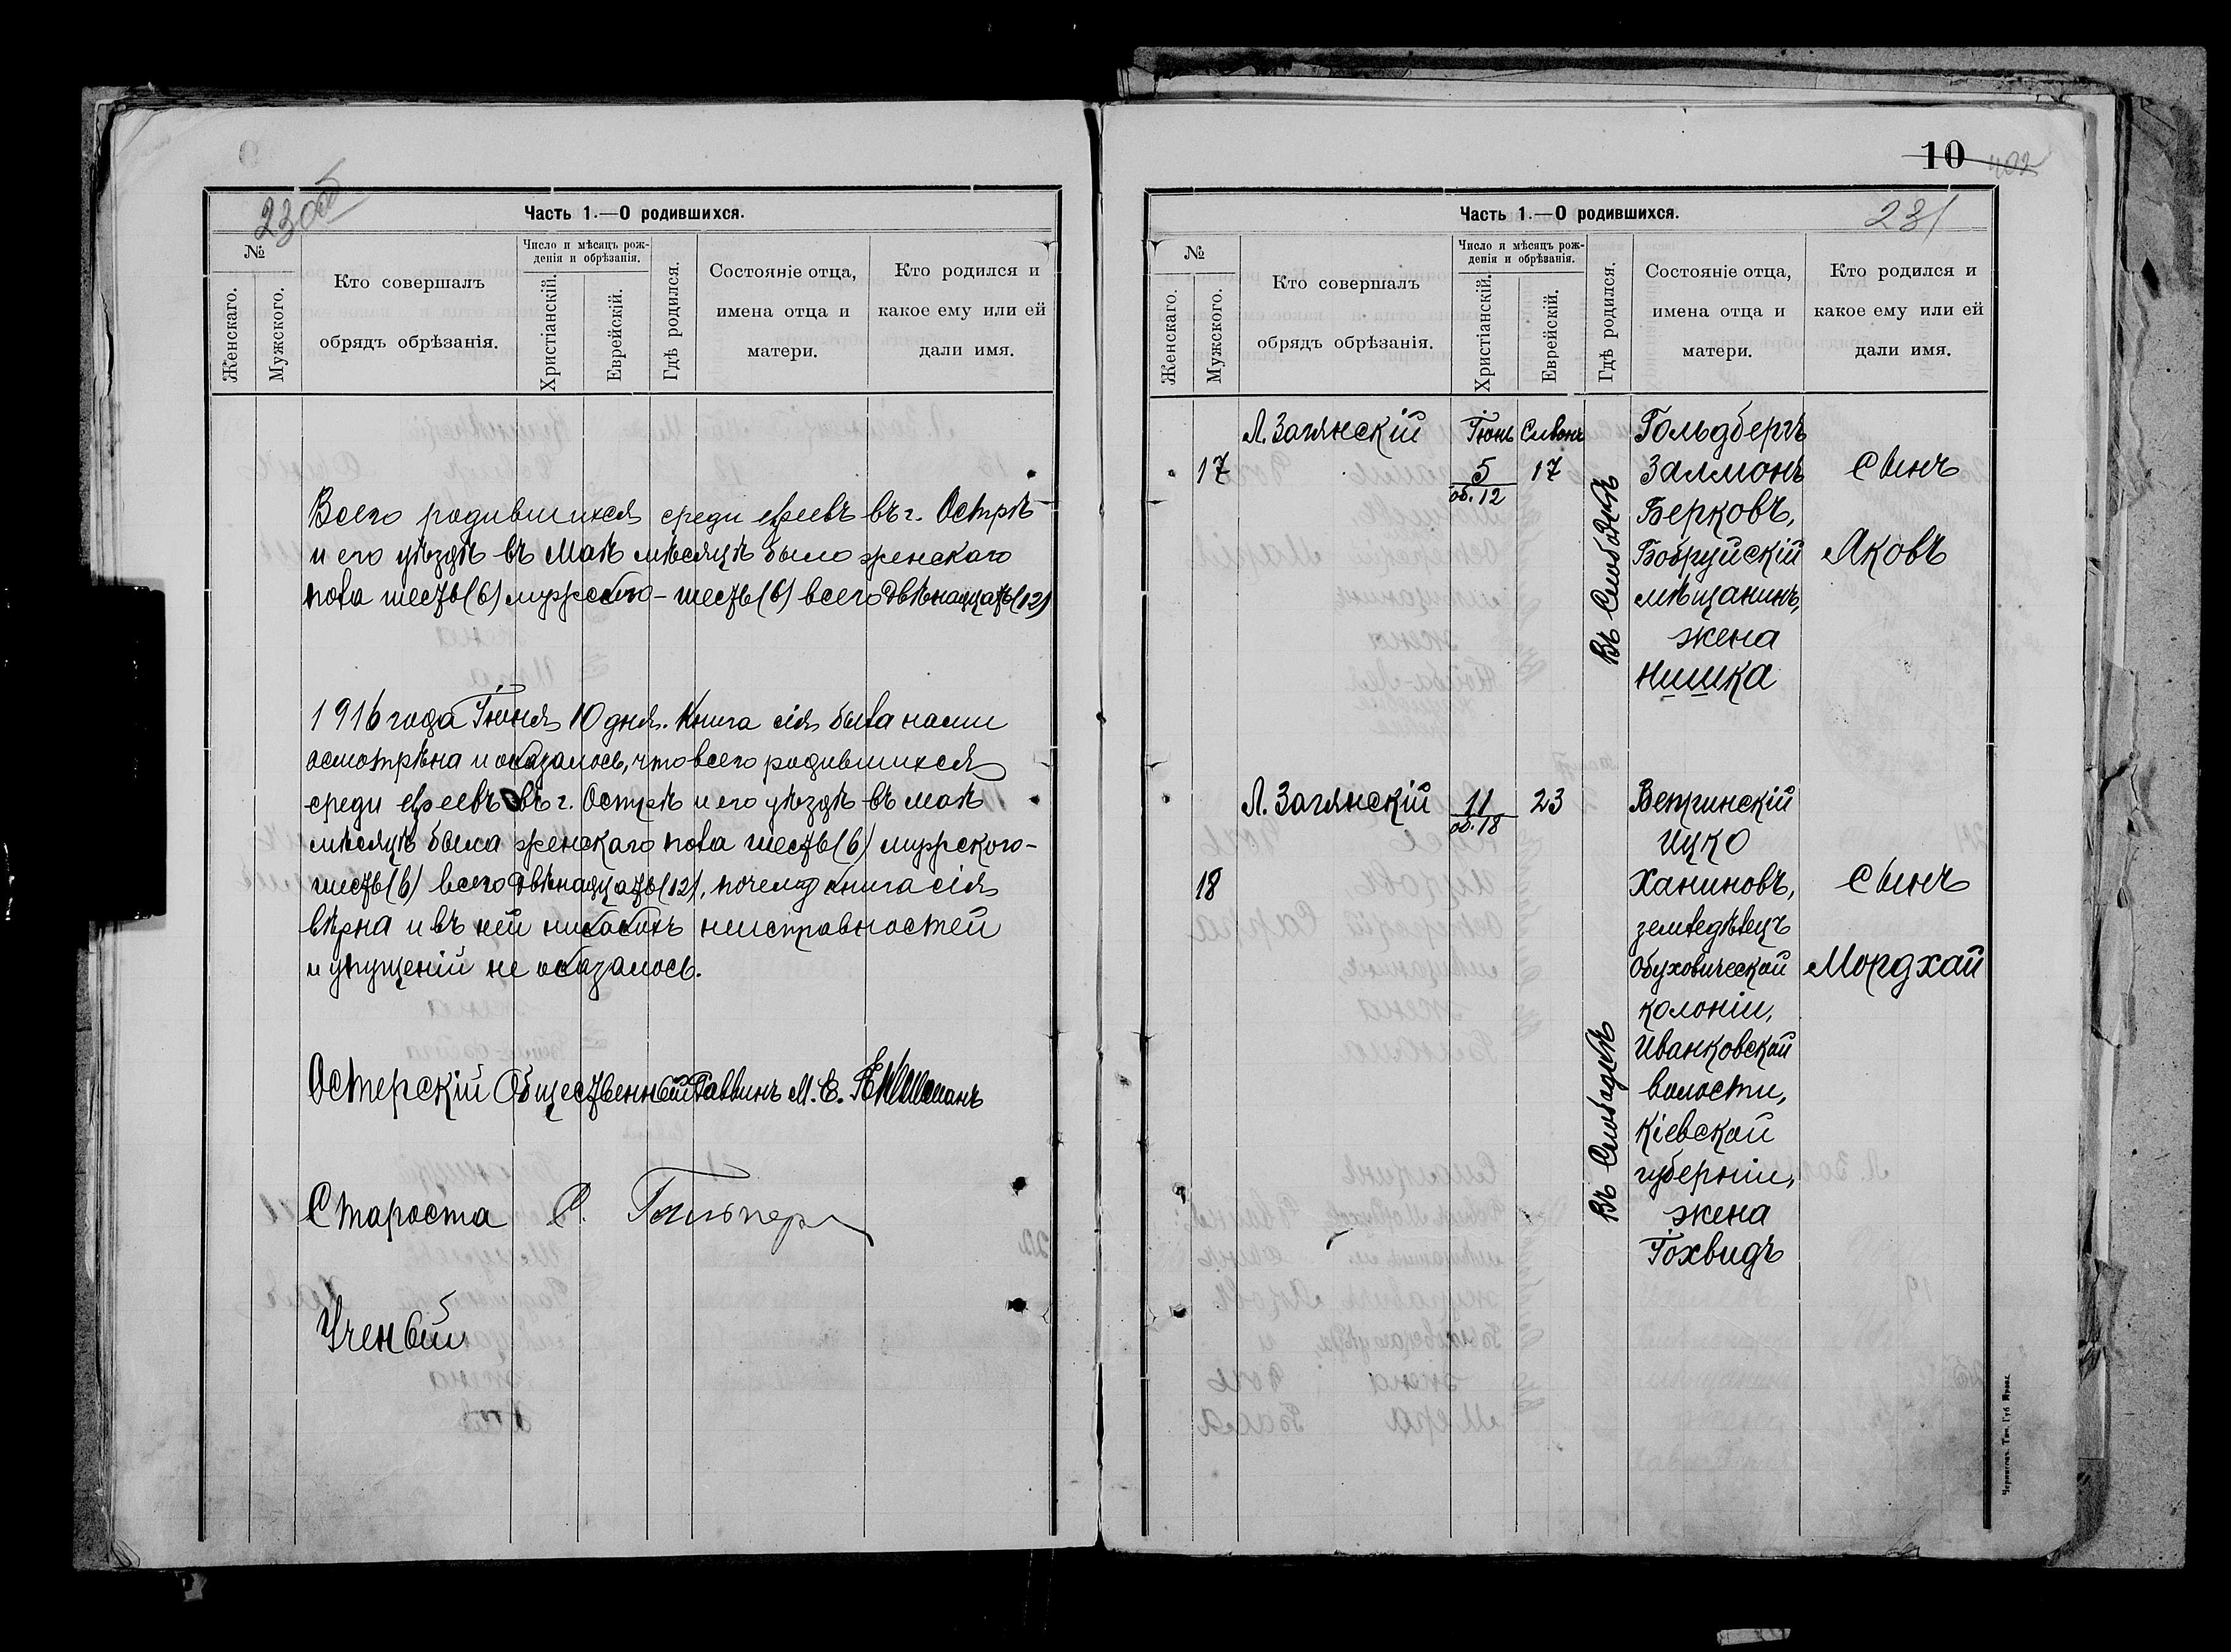 230об
Часть 1.—О родившихся.
№
Женскаго.
Мужского.
Кто совершалъ
обрядъ обрѣзанія.
Число и мѣсяцъ рож-
денія и обрѣзанія.
Христіанскій.
Еврейскій.
Гдѣ родился.
Состояніе отца,
имена отца и
матери.
Кто родился и
какое ему или ей
дали имя.
Всего родившихся среди евреевъ въ г. Острѣ
и его уѣздѣ въ Маѣ мѣсяцѣ было женскаго
пола шесть (6) мужского – шесть (6) всего двѣнадцать (12)
1916 года Іюня 10 дня. Книга сія была нами
осмотрѣна и оказалось, что всего родившихся
среди евреевъ въ г. Острѣ и его уѣздѣ въ маѣ
мѣсяцѣ было женскаго пола шесть (6) мужского –
шесть (6) всего двѣнадцать (12), почему книга сія
вѣрна и въ ней никакихъ неисправностей
и упущеній не оказалось.
Остерскій Общественный Раввинъ М. Е.
Староста
Ученый
10
402
231
Часть 1.—О родившихся.
№
Женскаго.
Мужского.
Кто совершалъ
обрядъ обрѣзанія.
Число и мѣсяцъ рож-
денія и обрѣзанія.
Христіанскій.
Еврейскій.
Гдѣ родился.
Состояніе отца,
имена отца и
матери.
Кто родился и
какое ему или ей
дали имя.
Л. Загянскій Іюнь Сивонъ Гольдбергъ
17 5 17 Залмонъ сынъ
об. 12 Берковъ,
Бобруйскій Яковъ
мѣщанинъ,
жена
Нишка
Въ Слободкѣ
Л. Загянскій 11 23 Ветринскій
об. 18 Ицко
18 Ханиновъ, сынъ
земледѣлецъ
Обуховической Мордхай
колоніи,
Иванковской
волости,
Кіевской
губерніи,
жена
Іохвидъ
Въ Слободкѣ
Черниговъ. Тип. Губ. Правл.